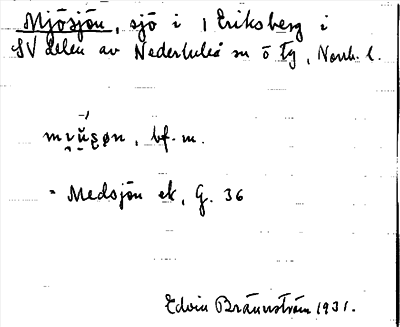 Mjösjön, sjö i 1 Eriksberg i
SV delen av Nederluleå sn ö Ty, Norrb. l.
bf. m.
= Medsjön ek, G. 36
Edvin Brännström 1931.